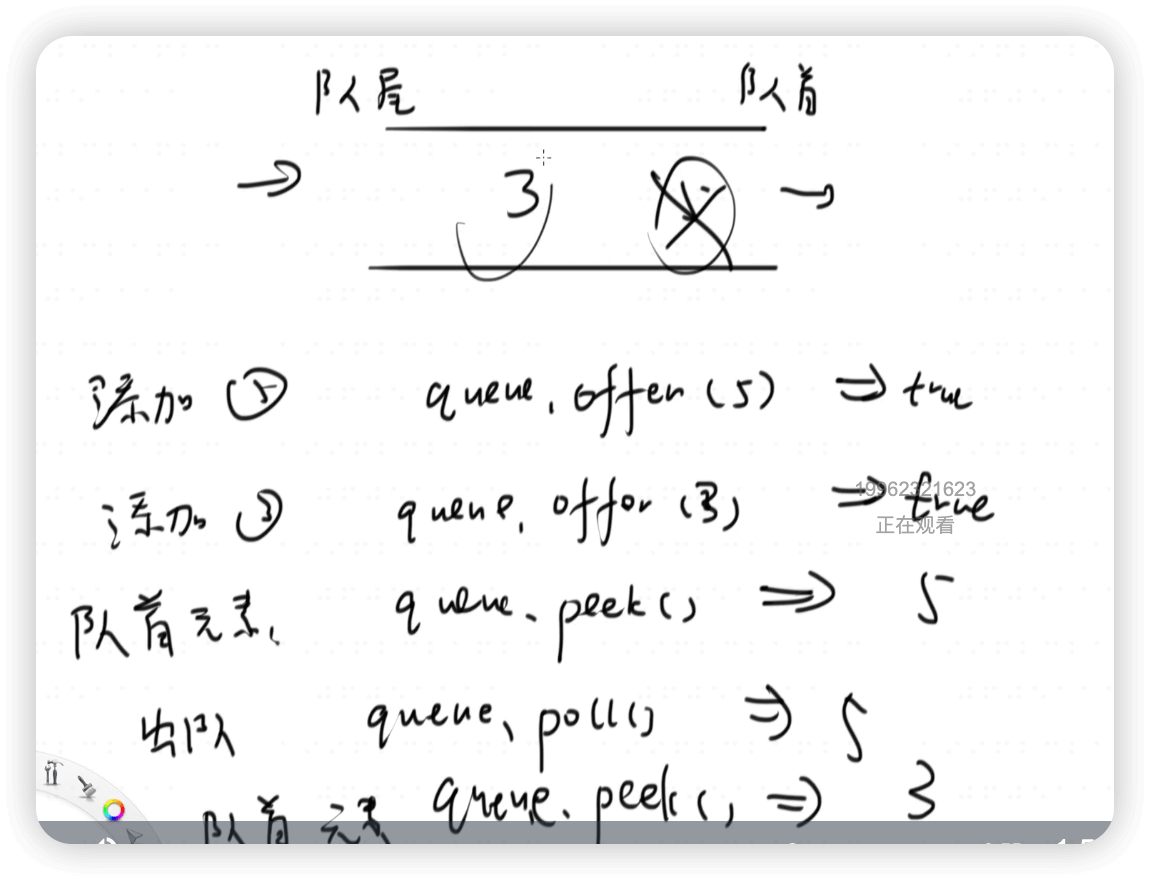 队尾 队首
3
添加 ⑤ queue.offer(5) => true
添加 ③ queue.offer(3) => true
19962321623
正在观看
队首元素 queue.peek() => 5
出队 queue.poll() => 5
队首元素 queue.peek() => 3